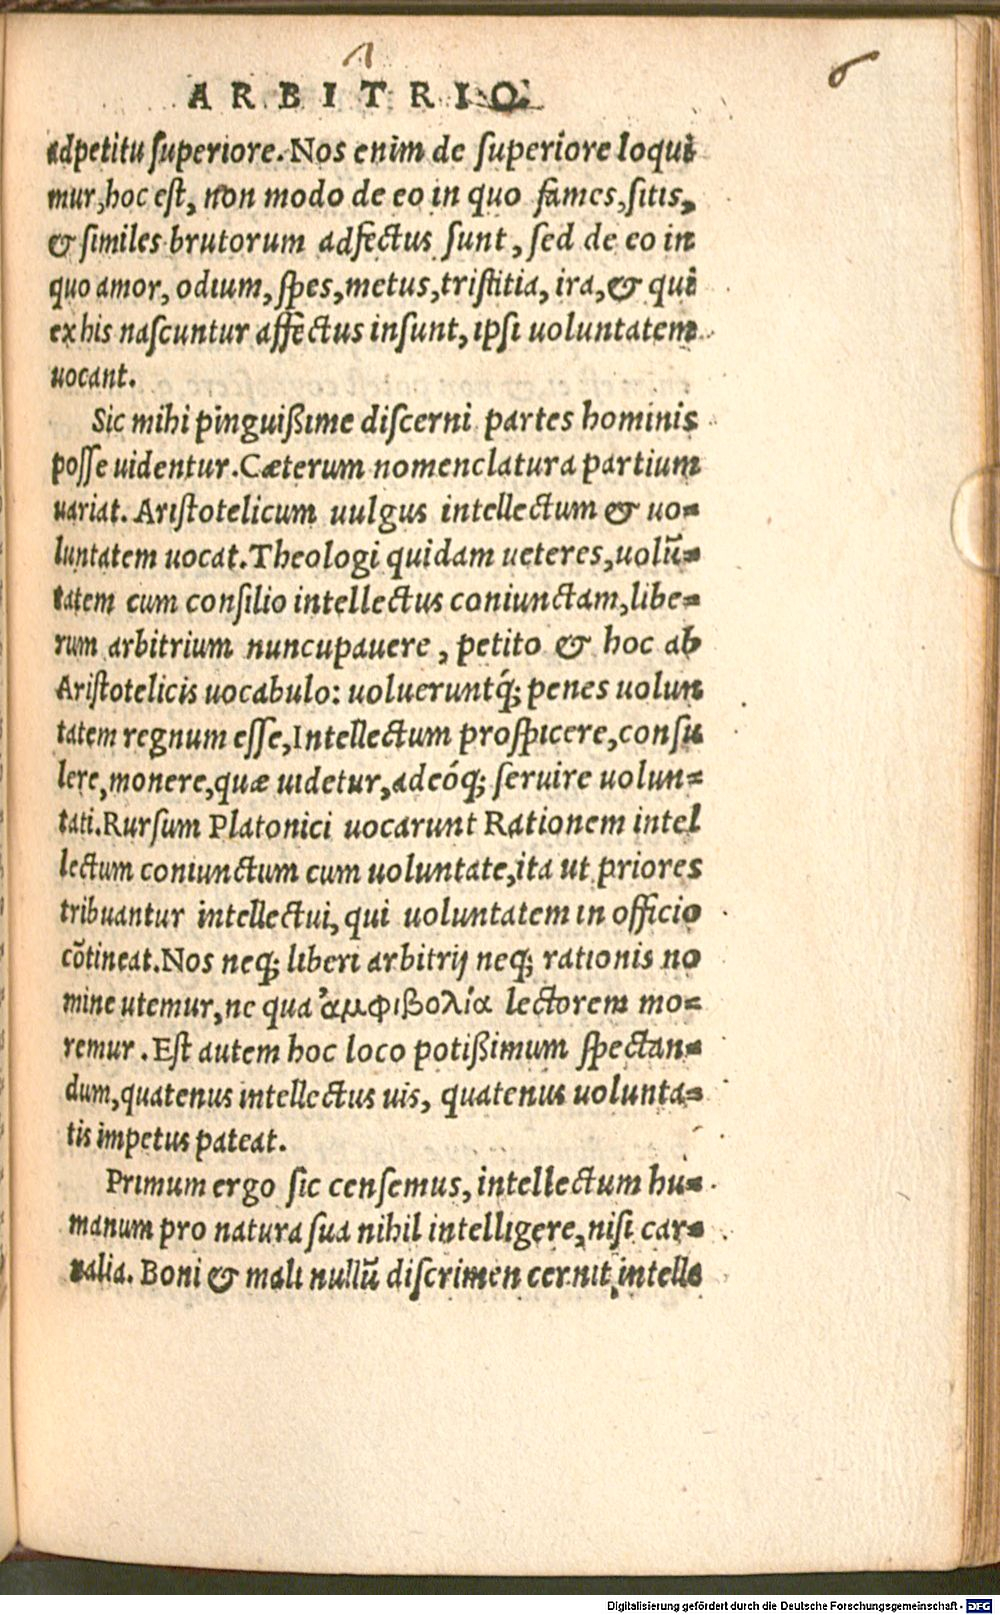 1
6
ARBITRIO.
adpetitu ſuperiore. Nos enim de ſuperiore loqui
mur, hoc eſt, non modo de eo in quo fames, ſitis,
& ſimiles brutorum adfectus ſunt, ſed de eo in
quo amor, odium, ſpes, metus, triſtitia, ira, & qui
ex his naſcuntur affectus inſunt, ipſi uoluntatem
uocant.
Sic mihi pinguißime diſcerni partes hominis
poſſe uidentur. Cæterum nomenclatura partium
uariat. Ariſtotelicum uulgus intellectum & uo=
luntatem uocat. Theologi quidam ueteres, uolũ=
tatem cum conſilio intellectus coniunctam, libe=
rum arbitrium nuncupauere, petito & hoc ab
Ariſtotelicis uocabulo: uolueruntq́; penes uolun
tatem regnum eſſe, Intellectum proſpicere, conſu
lere, monere, quæ uidetur, adeóq; ſeruire uolun=
tati. Rurſum Platonici uocarunt Rationem intel
lectum coniunctum cum uoluntate, ita ut priores
tribuantur intellectui, qui uoluntatem in officio
cõtineat. Nos neq; liberi arbitrij neq; rationis no
mine utemur, ne qua ἀμφιβολία lectorem mo=
remur. Eſt autem hoc loco potißimum ſpectan=
dum, quatenus intellectus uis, quatenus uolunta=
tis impetus pateat.
Primum ergo ſic cenſemus, intellectum hu=
manum pro natura ſua nihil intelligere, niſi car=
nalia. Boni & mali nullũ diſcrimen cernit intelle
Digitalisierung gefördert durch die Deutsche Forschungsgemeinschaft - DFG